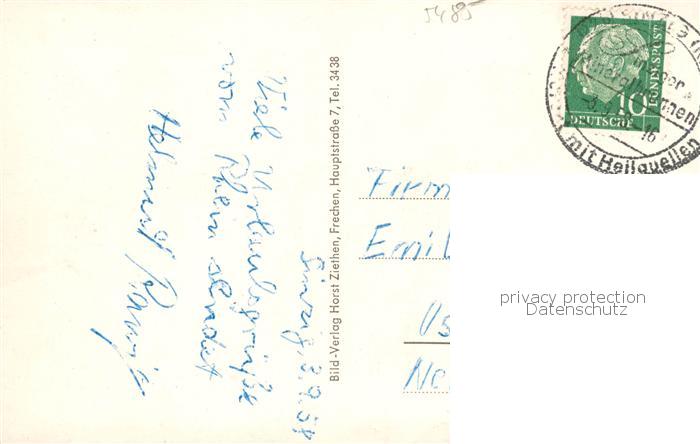 5485
SINZIG (RH
Sinziger
Mineralbrunnen
mit Heilquellen
10
BUNDESPOST
DEUTSCHE
Sinzig, 3.9.58
Viele Urlaubsgrüße
vom Rhein sendet
Helmut
Bild-Verlag Horst Ziethen, Frechen, Hauptstraße 7, Tel. 3438
Firm
Emil
Us
Ne
privacy protection
Datenschutz